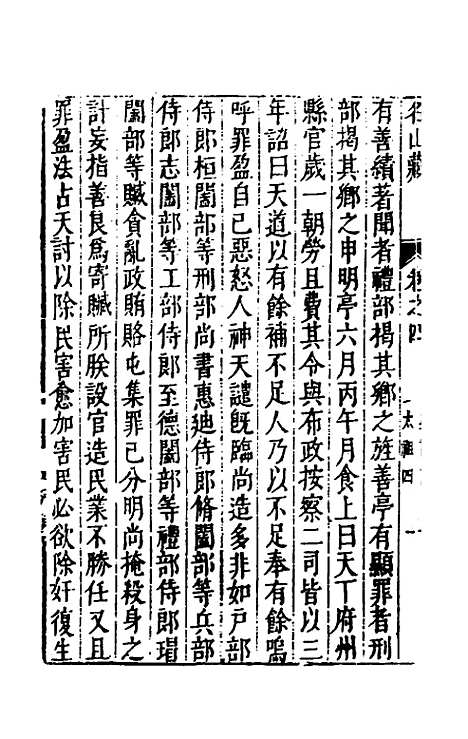 名山藏 卷之四 太祖四
有善績著聞者禮部揭其鄉之旌善亭有顯罪者刑
部揭其鄉之申明亭六月丙午月食上曰天下府州
縣官歲一朝勞且費其令與布政按察二司皆以三
年詔曰天道以有餘補不足人乃以不足奉有餘嗚
呼罪盈自己惡怒人神天譴旣臨尚造多非如戸部
侍郎桓閣部等刑部尚書惠迪侍郎脩閣部等兵部
侍郎志閣部等工部侍郎至德閣部等禮部侍郎瑁
閣部等贓貪亂政賄賂屯集罪已分明尚掩殺身之
計妄指善良爲寄贓所朕設官造民業不勝任又且
罪盈法占天討以除民害愈加害民必欲除奸復生